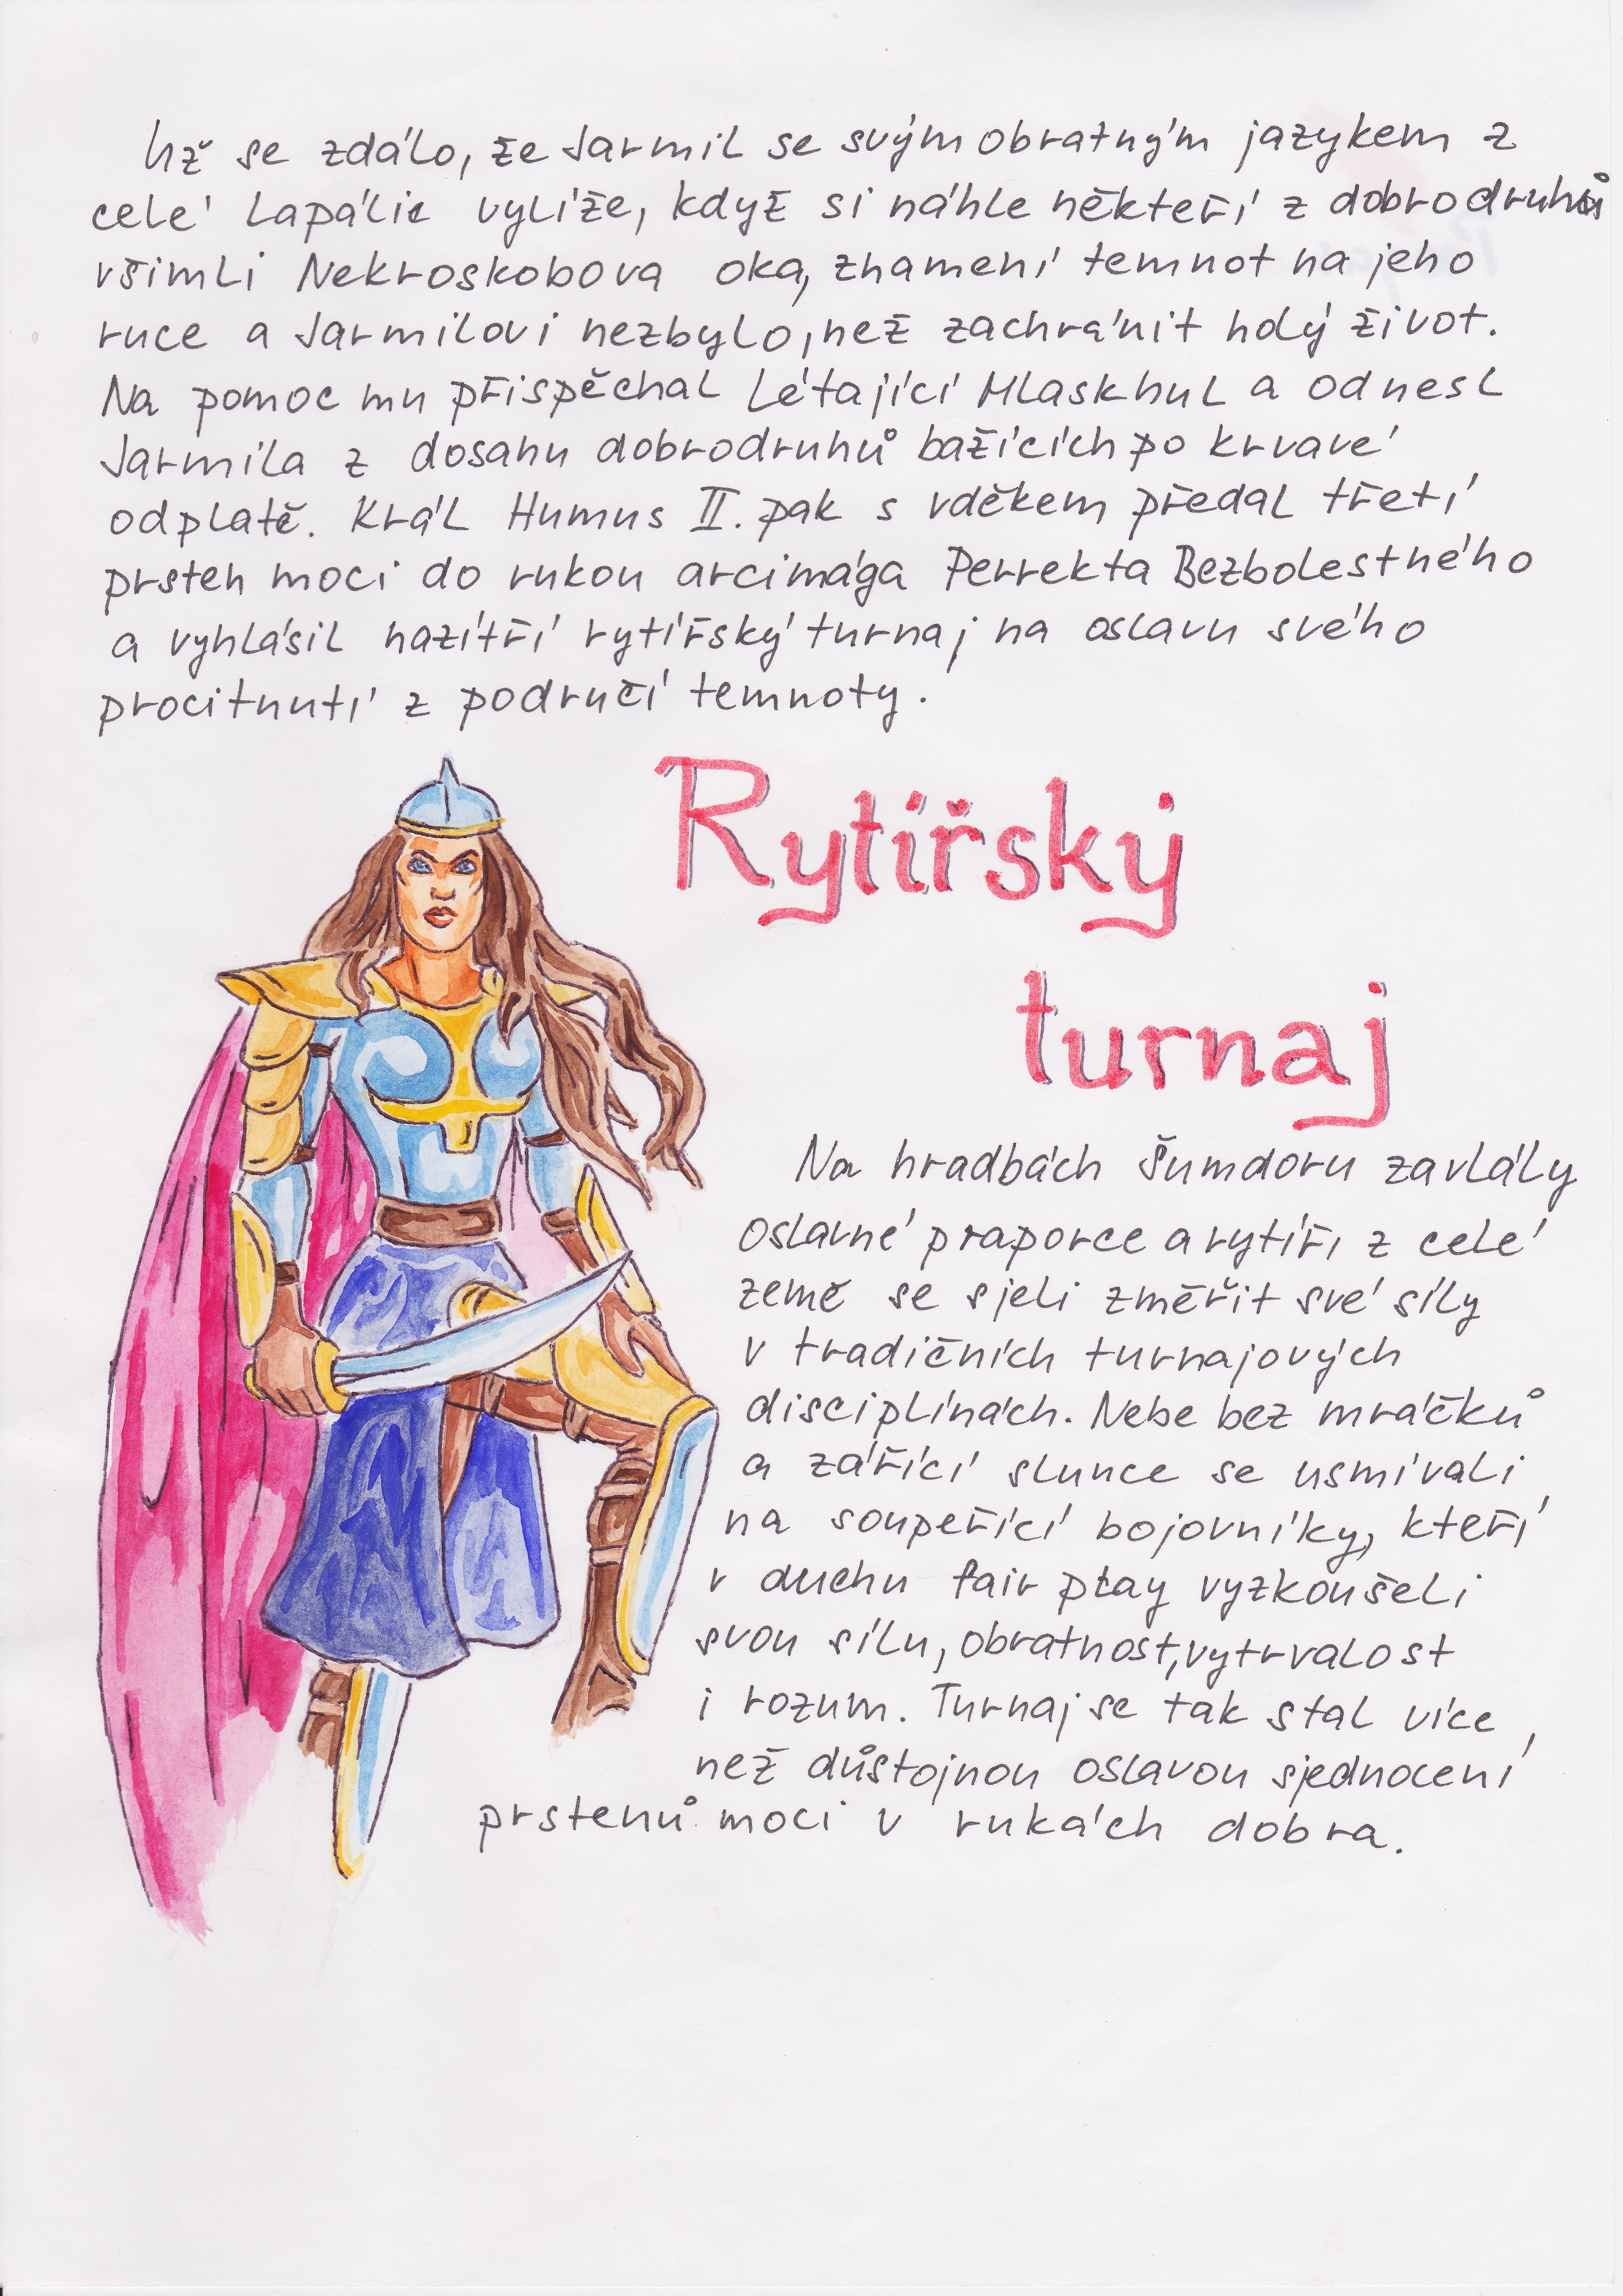 Už se zdálo, že Jarmil se svým obratným jazykem z
celé lapálie vylíže, když si náhle někteří z dobrodruhů
všimli Nekroskobova oka, znamení temnot na jeho
ruce a Jarmilovi nezbylo, než zachránit holý život.
Na pomoc mu přispěchal Létající Mlaskhul a odnesl
Jarmila z dosahu dobrodruhů bažících po krvavé
odplatě. Král Humus II. pak s vděkem předal třetí
prsten moci do rukou arcimága Perrekta Bezbolestného
a vyhlásil nazítří rytířský turnaj na oslavu svého
procitnutí z područí temnoty.
Rytířský
turnaj
Na hradbách Šumdoru zavlály
oslavné praporce a rytíři z celé
země se sjeli změřit své síly
v tradičních turnajových
disciplínách. Nebe bez mráčků
a zářící slunce se usmívali
na soupeřící bojovníky, kteří
v duchu fair play vyzkoušeli
svou sílu, obratnost, vytrvalost
i rozum. Turnaj se tak stal více
než důstojnou oslavou sjednocení
prstenů moci v rukách dobra.